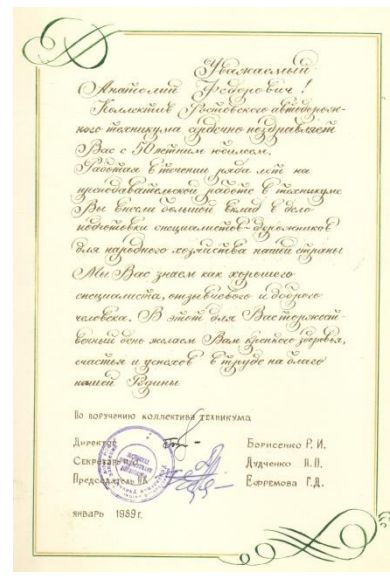 Уважаемый
Анатолий Федорович!
Коллектив Ростовского автодорож-
ного техникума сердечно поздравляет
Вас с 50летним юбилеем.
Работая в течении ряда лет на
преподавательской работе в техникуме
Вы внесли большой вклад в дело
подготовки специалистов-дорожников
для народного хозяйства нашей страны
Мы Вас знаем как хорошего
специалиста, отзывчевого и доброго
человека. В этот для Вас торжест-
венный день желаем Вам крепкого здоровья,
счастья и успехов в труде на благо
нашей Родины
По поручению коллектива техникума
Директор Борисенко Р.И.
Секретарь Дудченко
Председатель ПК Ефремова Г.Д.
январь 1989г.